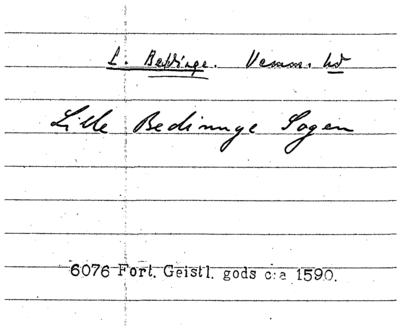 L. Beddinge. Vemm. hd
Lille Bedinnge Sogen
6076 Fort. Geistl. gods c:a 1590.